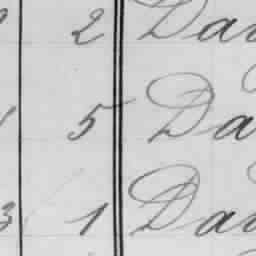 2 Dav
5 Da
3 1 Dav